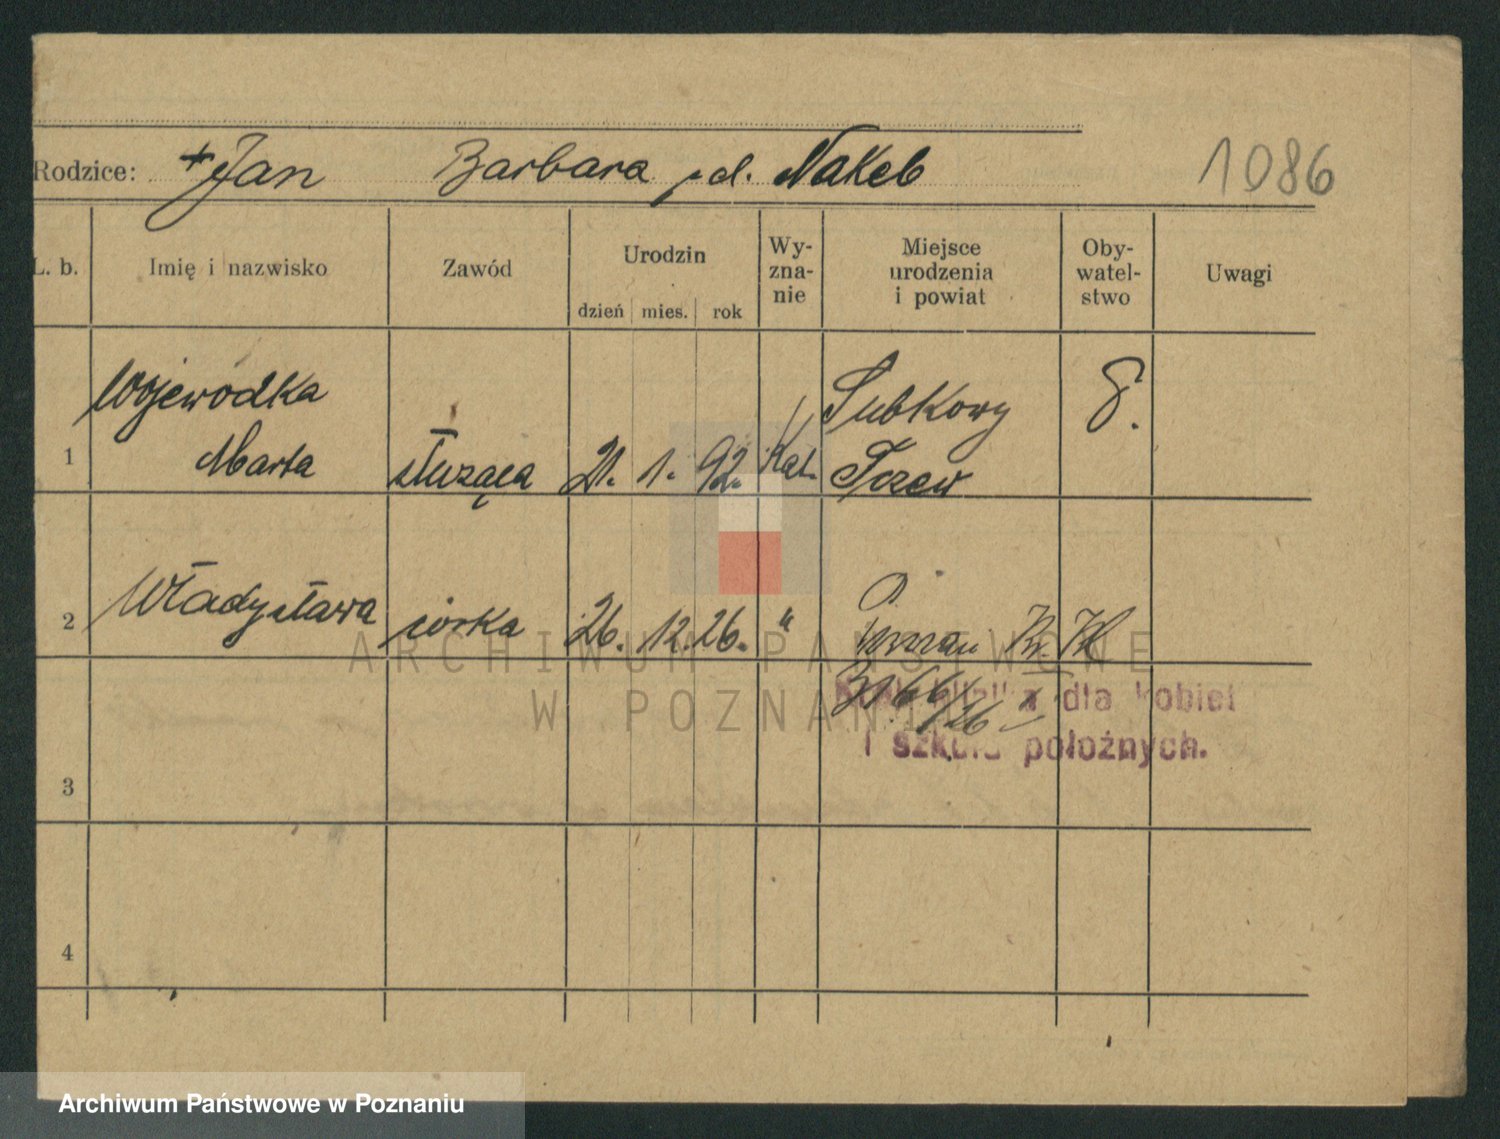 Rodzice: + Jan Barbara zd. Nakeb 1086
L. b. Imię i nazwisko Zawód Urodzin dzień mies. rok Wy-zna-nie Miejsce urodzenia i powiat Oby-watel-stwo Uwagi
Wojewódka Subkowy
1 Marta służąca 21. 1. 92. Kat. Tczew
2 Władysława córka 26. 12. 26. "
dla kobiet
3 i szkoła położnych.
4
ARCHIWUM PAŃSTWOWE
W POZNANIU
Archiwum Państwowe w Poznaniu